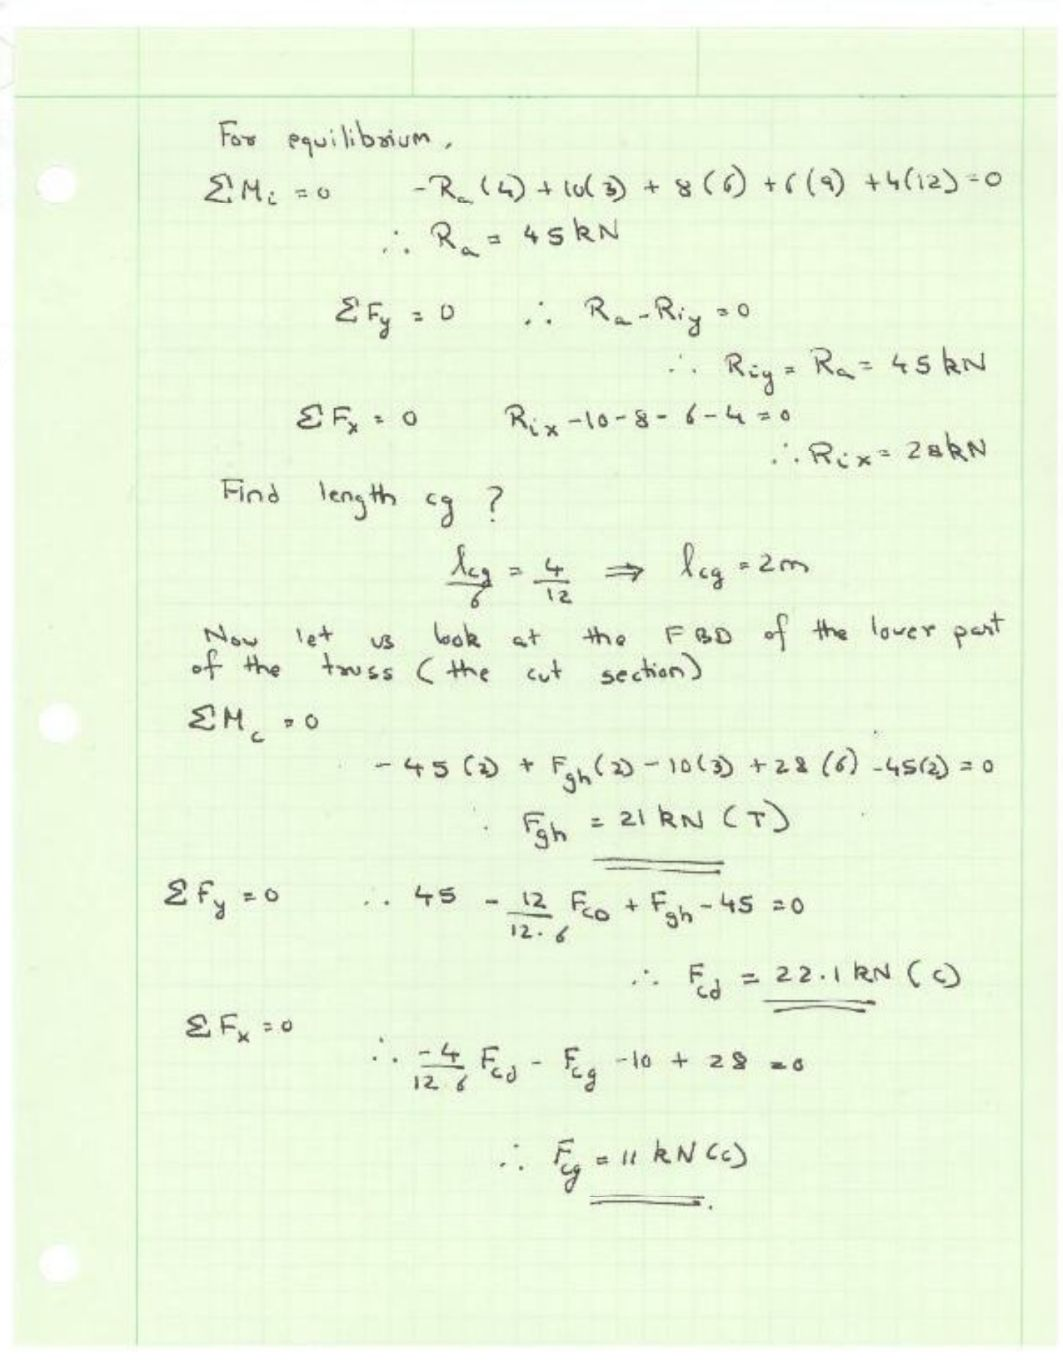 For equilibrium,
ΣMi = 0 -Ra (4) + 10(3) + 8(6) + 6(9) + 4(12) = 0
∴ Ra = 45 kN
ΣFy = 0 ∴ Ra - Riy = 0
∴ Riy = Ra = 45 kN
ΣFx = 0 Rix - 10 - 8 - 6 - 4 = 0
∴ Rix = 28 kN
Find length cg ?
lcg/6 = 4/12 ⇒ lcg = 2m
Now let us look at the FBD of the lower part
of the truss (the cut section)
ΣMc = 0
- 45 (2) + Fgh (2) - 10(3) + 28 (6) - 45(2) = 0
∴ Fgh = 21 kN (T)
ΣFy = 0 ∴ 45 - 12/12.6 FCD + Fgh - 45 = 0
∴ Fcd = 22.1 kN (C)
ΣFx = 0
∴ -4/12.6 Fcd - Fcg - 10 + 28 = 0
∴ Fcg = 11 kN (C)